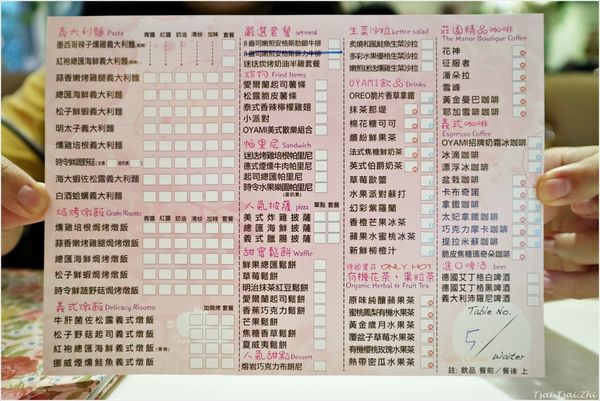 義大利麵 Pasta 青醬 紅醬 奶油 清炒 加辣 套餐
墨西哥辣子燻雞義大利麵
紅袍總匯海鮮義大利麵(微辣)
蒜香嫩烤雞腿義大利麵
總匯海鮮義大利麵
松子鮮蝦義大利麵
明太子義大利麵
燻雞培根義大利麵
時令鮮蔬野菇
海大蝦佐松露義大利麵
白酒蛤蠣義大利麵
焗烤燉飯 Gratin Risotto 青醬 紅醬 奶油 清炒 加辣 套餐
燻雞培根焗烤燉飯
蒜香嫩烤雞腿焗烤燉飯
總匯海鮮焗烤燉飯
松子鮮蝦焗烤燉飯
時令鮮蔬野菇焗烤燉飯
義式燉飯 Delicacy Risotto 加焗烤 套餐
牛肝菌佐松露義式燉飯
松子野菇起司義式燉飯
紅袍總匯海鮮義式燉飯(微辣)
挪威煙燻鮭魚義式燉飯
嚴選套餐 set meal
8盎司嫩煎安格斯肋眼牛排
8盎司嫩煎安格斯菲力牛排
迷迭炭烤奶油半雞套餐
炸物 Fried Items
愛爾蘭起司薯條
松露脆皮薯條
泰式香辣檸檬雞翅
小派對
OYAMI美式歡樂組合
帕里尼 Sandwich
迷迭烤雞培根帕里尼
德式煙燻牛肉帕里尼
起司總匯帕里尼
時令水果樂園帕里尼
人氣披薩 pizza 單點 套餐
美式炸雞披薩
總匯海鮮披薩
義式臘腸披薩
甜蜜鬆餅 Waffle
鮮果總匯鬆餅
草莓鬆餅
明治抹茶紅豆鬆餅
愛爾蘭巧克力鬆餅
香蕉巧克力鬆餅
芒果鬆餅
焦糖香草鬆餅
夏威夷鬆餅
人氣甜點 Dessert
熔岩巧克力布朗尼
生菜沙拉 Lettce salad
炙燒和風鮭魚生菜沙拉
多彩水果優格生菜沙拉
嫩煎迷迭燻雞生菜沙拉
OYAMI飲品 Drinks
OREO脆片香草拿鐵
抹茶那堤
棉花糖可可
繽紛鮮果茶
法式焦糖鮮奶茶
英式伯爵奶茶
草莓歐蕾
水果派對蘇打
幻彩紫羅蘭
香橙芒果冰茶
蘋果水蜜桃冰茶
新鮮柳橙汁
ONLY HOT
有機花茶、果粒茶
Organic Herbal & Fruit Tea
原味純釀蘋果茶
蜜桃鳳梨有機水果茶
黃金歲月水果茶
覆盆子草莓水果茶
有機櫻桃玫瑰水果茶
熱帶密瓜水果茶
莊園精品咖啡
The Manor Boutique Coffee
花神
征服者
潘朵拉
雪峰
黃金曼巴咖啡
耶加雪啡咖啡
義式咖啡
Espresso Coffee
OYAMI招牌奶霜冰咖啡
冰滴咖啡
漂浮冰咖啡
盆栽咖啡
卡布奇諾
拿鐵咖啡
太妃拿鐵咖啡
巧克力摩卡咖啡
提拉米蘇咖啡
脆皮焦糖瑪奇朵咖啡
進口啤酒 beer
德國艾丁格白啤酒
德國艾丁格黑啤酒
義大利沛羅尼啤酒
Table No.
5./
Waiter
註:飲品 餐前/餐後 上
Tsai Tsai Zhi